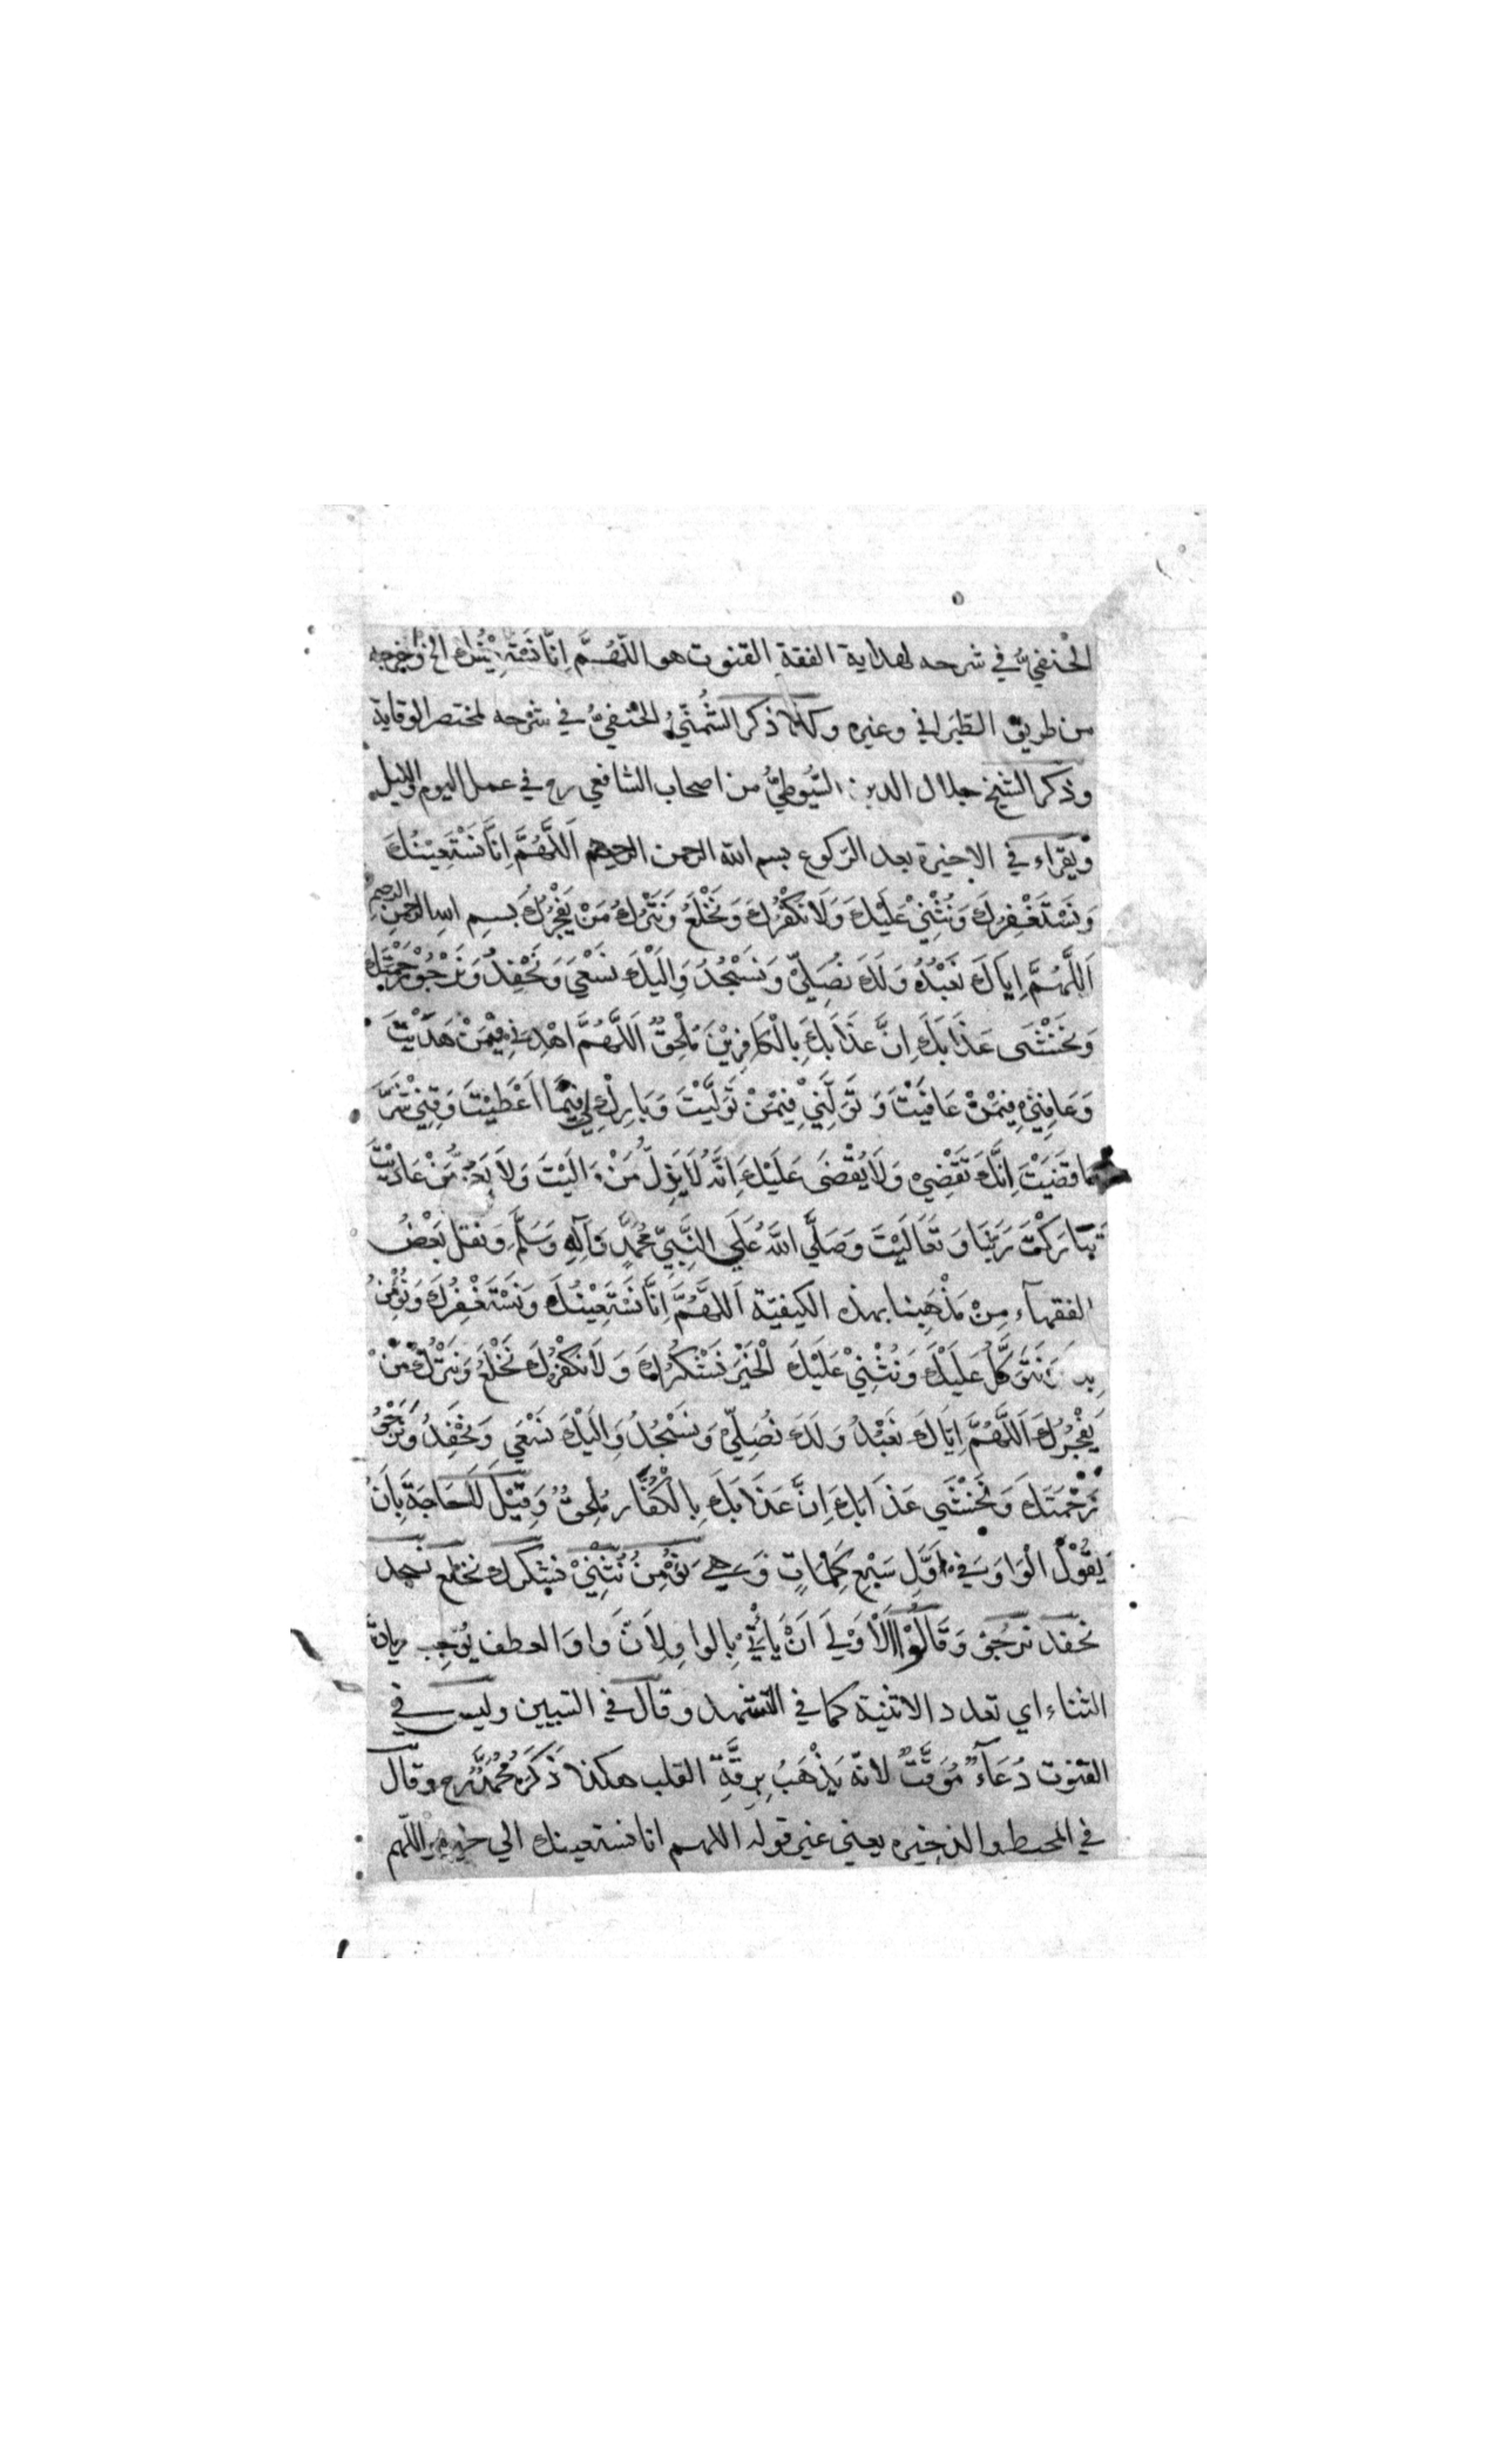 الحنفيُّ في شرحه لهداية الفقة القنوت هو اللّهُمَّ اِنَّا نَسْتَعِيْنُكَ الخ واخرجه
من طريق الطبَراني وغيره وكذا ذكر الشُمُنّيُّ الحنفيُّ في شرْحه لمختصر الوقاية
وذكر الشيخ جلال الدين السّيُوطيُّ من اصحاب الشافعي رح في عمل اليوم والليل
ويَقراء في الاخيرة بعد الرّكوع بسم الله الرحمن الرحيم اَللَّهُمَّ اِنَّا نَسْتَعِيْنُكَ
وَنَسْتَغْفِرُكَ وَنُثْنِيْ عَلَيْكَ وَلَا نَكْفُرُكَ وَنَخْلَعُ وَنَتْرُكُ مَنْ يَفْجُرُكَ بِسمِ اللهِ الرحمنِ الرحيمِ
اَللَّهُمَّ اِيَاكَ نَعْبُدُ وَلَكَ نُصَلِّيْ وَنَسْجُدُ وَاِلَيْكَ نَسْعَيَ وَنَحْفِدُ وَنَرْجُوْ رَحْمَتَكَ
وَنَخْشَى عَذَابَكَ اِنَّ عَذَابَكَ بِالْكَافِرِيْنَ مُلْحِقٌ اَللَّهُمَّ اهْدِنِيْ فِيْمَنْ هَدَيْتَ
وَعَافِنِيْ فِيْمَنْ عَافَيْتَ وَتَوَلَّنِيْ فِيْمَنْ تَوَلَّيْتَ وَبَارِكْ لِيْ فِيْمَا اَعْطَيْتَ وَقِنِيْ شَرَّ
مَا قَضَيْتَ اِنَّكَ تَقْضِيْ وَلَا يُقْضَى عَلَيْكَ اِنَّهُ لَا يَذِلُّ مَنْ وَالَيْتَ وَلَا يَعِزُّ مَنْ عَادَيْتَ
تَبَارَكْتَ رَبَّنَا وَتَعَالَيْتَ وَصَلَّي اللهُ عَلَي النَّبِيِّ مُحَمَّدٍ وَآلِهِ وَسَلَّمَ وَنقل بَعْضُ
الفقهآء مِنْ مَذْهَبِنا بهذه الكيفيّة اَللَّهُمَّ اِنَّا نَسْتَعِيْنُكَ وَنَسْتَغْفِرُكَ وَنُؤْمِنُ
بِكَ نَتَوَكَّلُ عَلَيْكَ وَنُثْنِيْ عَلَيْكَ الْخَيْرَ نَشْكُرُكَ وَلَا نَكْفُرُكَ نَخْلَعُ وَنَتْرُكُ مَنْ
يَفْجُرُكَ اَللَّهُمَّ اِيَّاكَ نَعْبُدُ وَلَكَ نُصَلِّيْ وَنَسْجُدُ وَاِلَيْكَ نَسْعَي وَنَحْفِدُ وَنَرْجُوْ
رَحْمَتَكَ وَنَخْشَي عَذَابَكَ اِنَّ عَذَابَكَ بِالْكُفَّارِ مُلْحِقٌ وَقِيْلَ لَا حَاجَةَ بِاَنْ
يَقُوْلَ الْوَاوَ فِيْ اَوَّلِ سَبْعِ كَلِمَاتٍ وَهِيَ نُؤْمِنُ نُثْنِيْ نشكرك نخلع نسجد
نحفد نَرْجُوْ وَقَالُوْا اَلْاَوْلَي اَنْ يَأْتِيْ بِالواوِ لِاَنَّ وَاوَ العطف يُوْجِب زيادة
الثناء اي تعدد الاثنية كما في التشهد وقال في التبيين وليس في
القنوت دُعَآءٌ مُوَقَّتٌ لانّه يَذْهَبُ بِرِقَّةِ القلب هكذا ذَكَرَهُ مُحَمَّدٌ رح وقال
في المحيط والذخيره يعني غير قوله اللهم انا نستعينك الي اللّهم